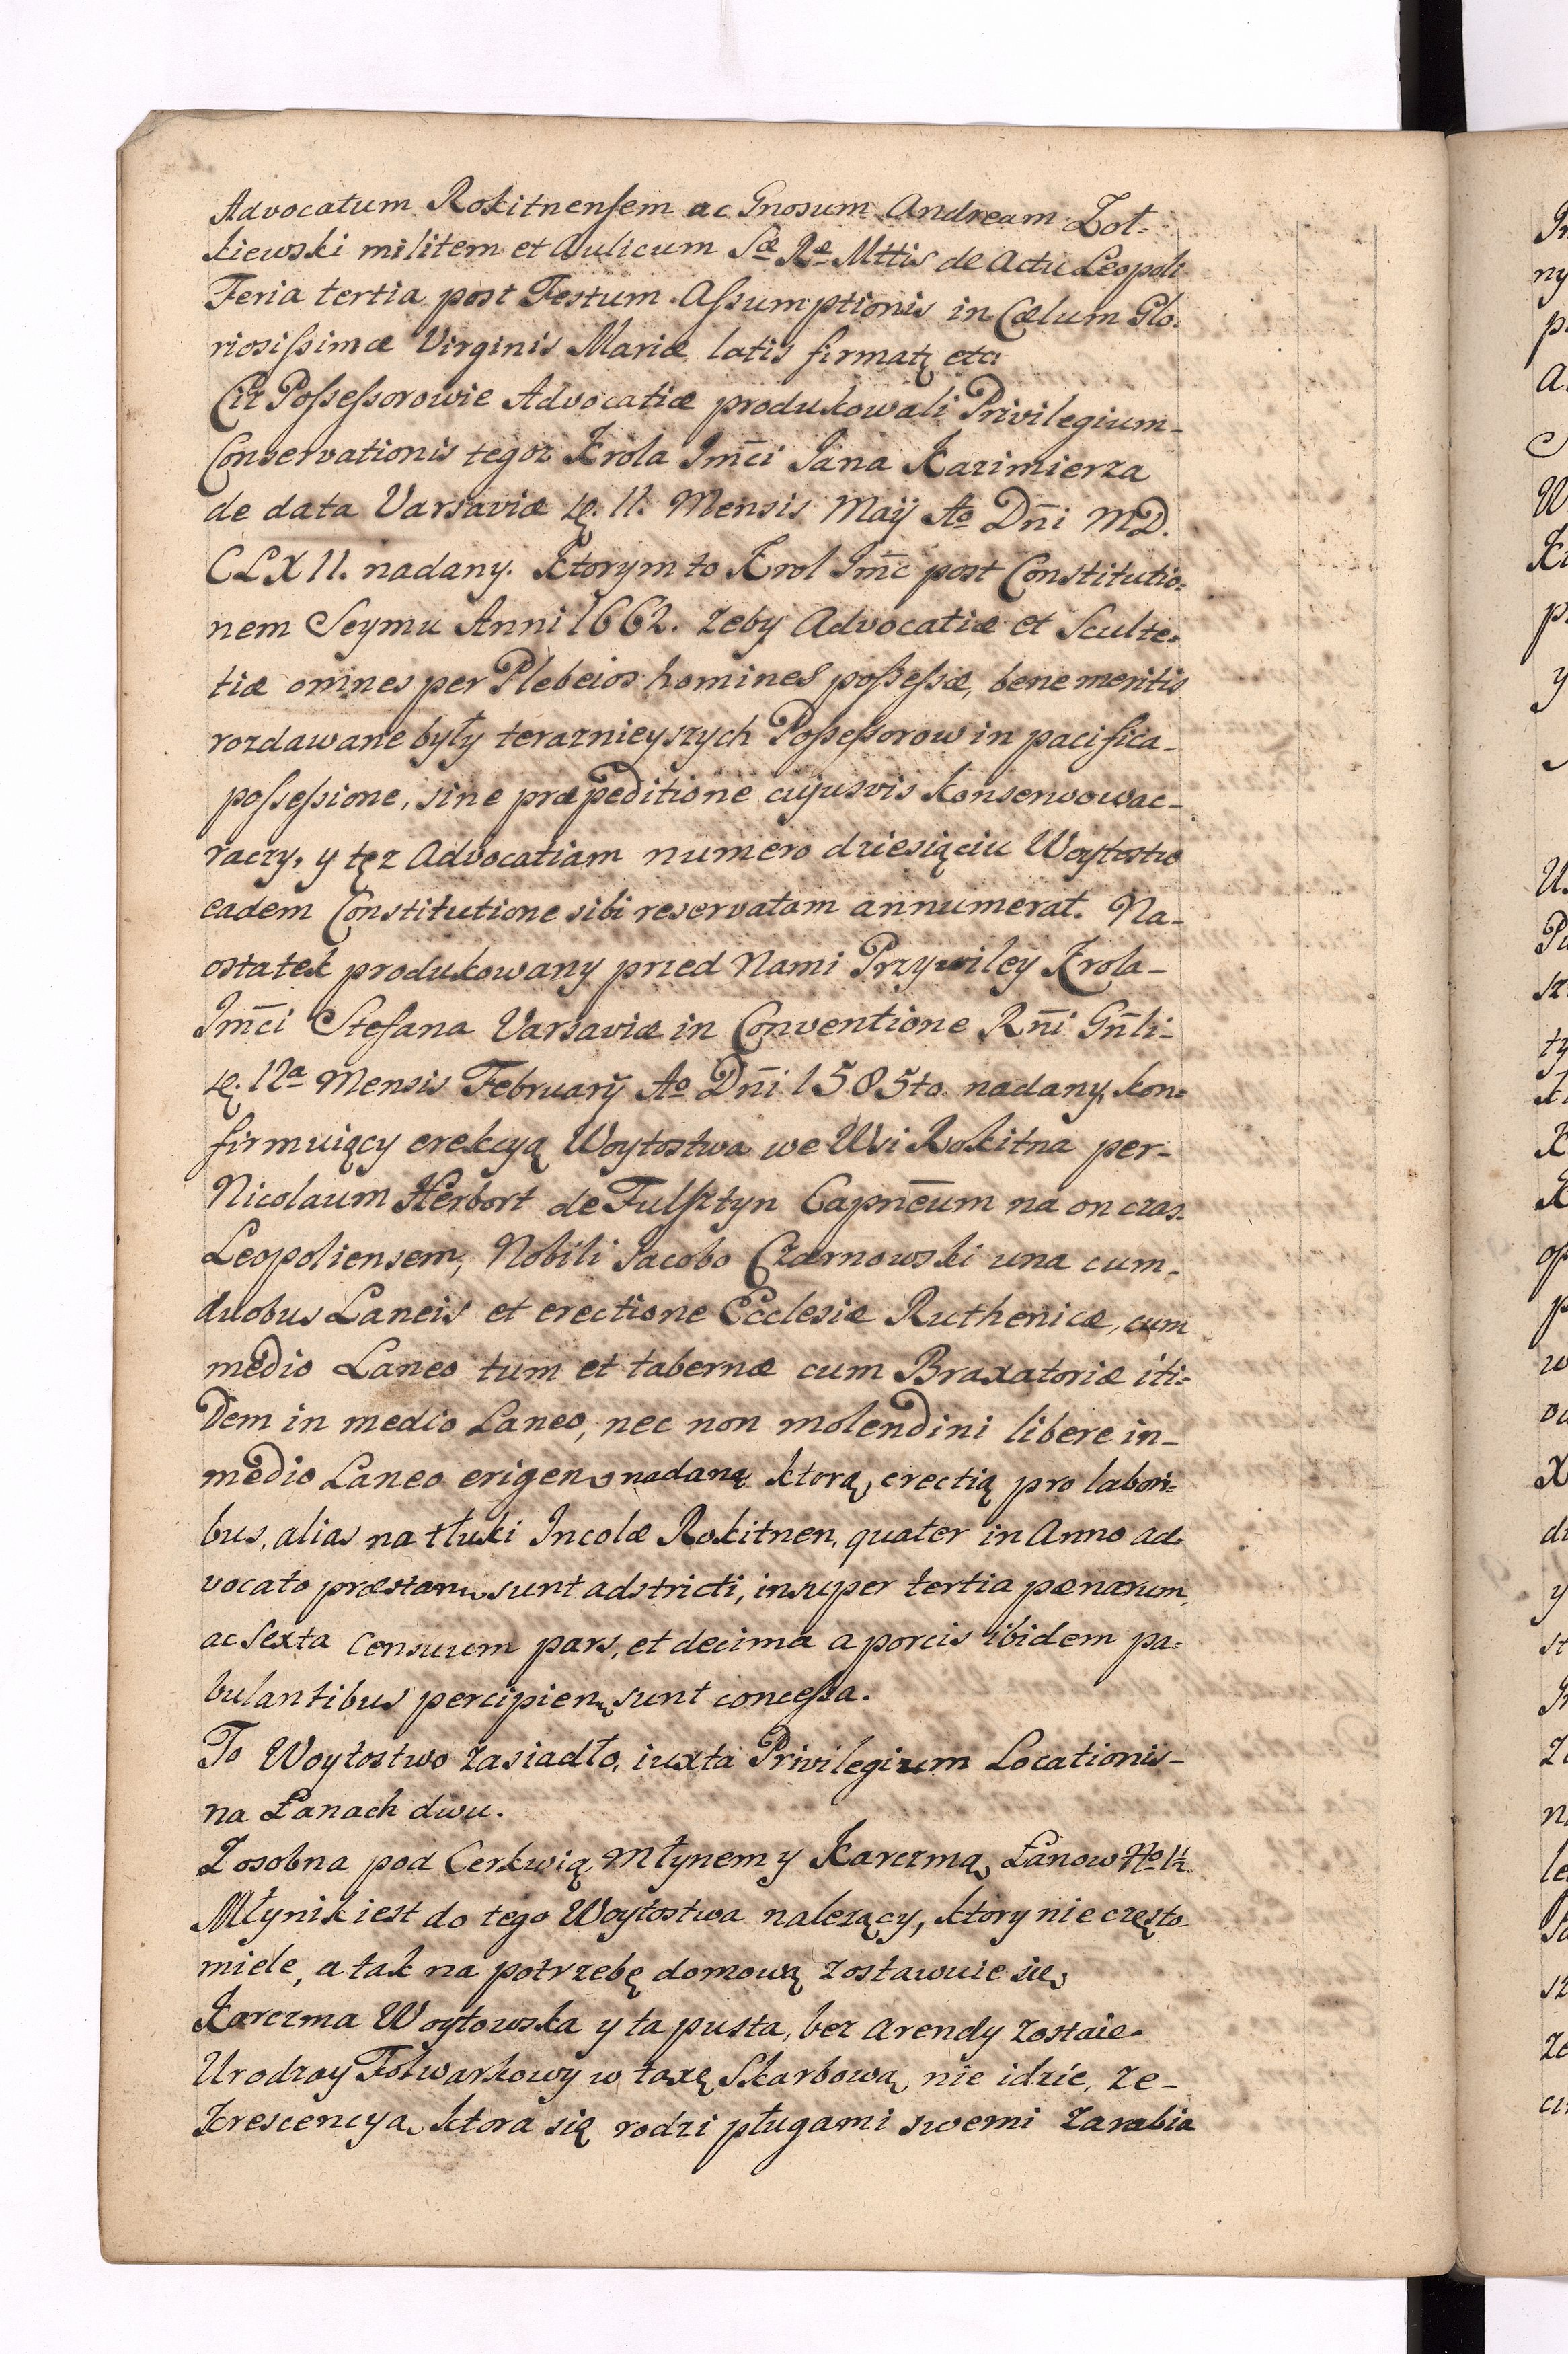 Advocatum Rokitnenſem ac Gnosum Andream Zoł=
kiewski militem et Aulicum Sæ Ræ Mttis de Actu Leopoli
Feria tertia post Festum Aſsumptionis in Cælum Glo=
riosiſsimæ Virginis Mariæ latis firmatę etc:
Ciz Poſseſsorowie Advocatiæ produkowali Privilegium-
Conservationis tegoz Krola Jm̄ci Jana Kazimierza
de data Varsaviæ 11. Mensis Maij Ao Dn̄i MD.
CLXII. nadany. Ktorym to Krol Jm̄c post Constitutio=
nem Seymu Anni 1662. zeby Advocatiæ et Sculte=
tiæ omnes per Plebeios homines poſseſsæ, bene meritis
rozdawane były teraznieyszych Poſseſsorow in pacifica-
poſseſsione, sine præpeditione cujusvis konserwowac-
raczy, y tęz Advocatiam numero dziesiąciu Woytostw
eadem Constitutione sibi reservatam annumerat. Na-
ostatek produkowany przed Nami Przywiley Krola-
Jm̄ci Stefana Varsaviæ in Conventione Rn̄i Gn̄li-
12a Mensis Februarij Ao Dn̄i 1585to. nadany, kon=
firmuiący erekcyą Woytostwa we Wsi Rokitna per-
Nicolaum Herbort de Fulſztyn Capnēum na on czas-
Leopoliensem, Nobili Jacobo Czarnowski una cum-
duobus Laneis et erectione Ecclesiæ Ruthenicæ, cum
medio Laneo tum et tabernæ cum Braxatoriæ iti=
Dem in medio Laneo, nec non molendini libere in-
medio Laneo erigen nadaną ktorą, erectią pro labori=
bus, alias na tłuki Incolæ Rokitnen, quater in Anno ad=
vocato præstan sunt adstricti, insuper tertia pænarum,
ac Sexta Censuum pars, et decima a porcis ibidem pa=
bulantibus percipien sunt conceſsa.
To Woytostwo zasiadło, iuxta Privilegium Locationis-
na Łanach dwu.
Zosobna pod Cerkwią, Młynem y Karczmą, Łanow No 1½
Młynik iest do tego Woytostwa nalezący, ktory nie często-
miele, a tak na potrzebę domową zostawuie się,
Karczma Woytowska y ta pusta, bez Arendy zostaie.
Urodzay Folwarkowy w taxę Skarbową nie idzie, ze-
Krescencya, ktora się rodzi pługami swemi zarabia